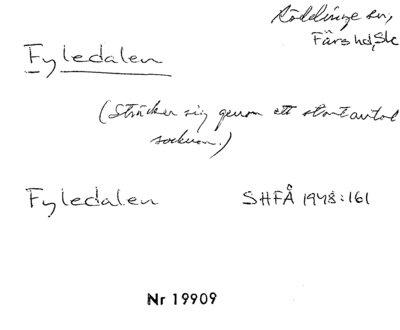 Röddinge sn,
Färs hd, Sk
Fyledalen
(Sträcker sig genom ett stort antal
socknar.)
Fyledalen SHFÅ 1948:161
Nr 19909